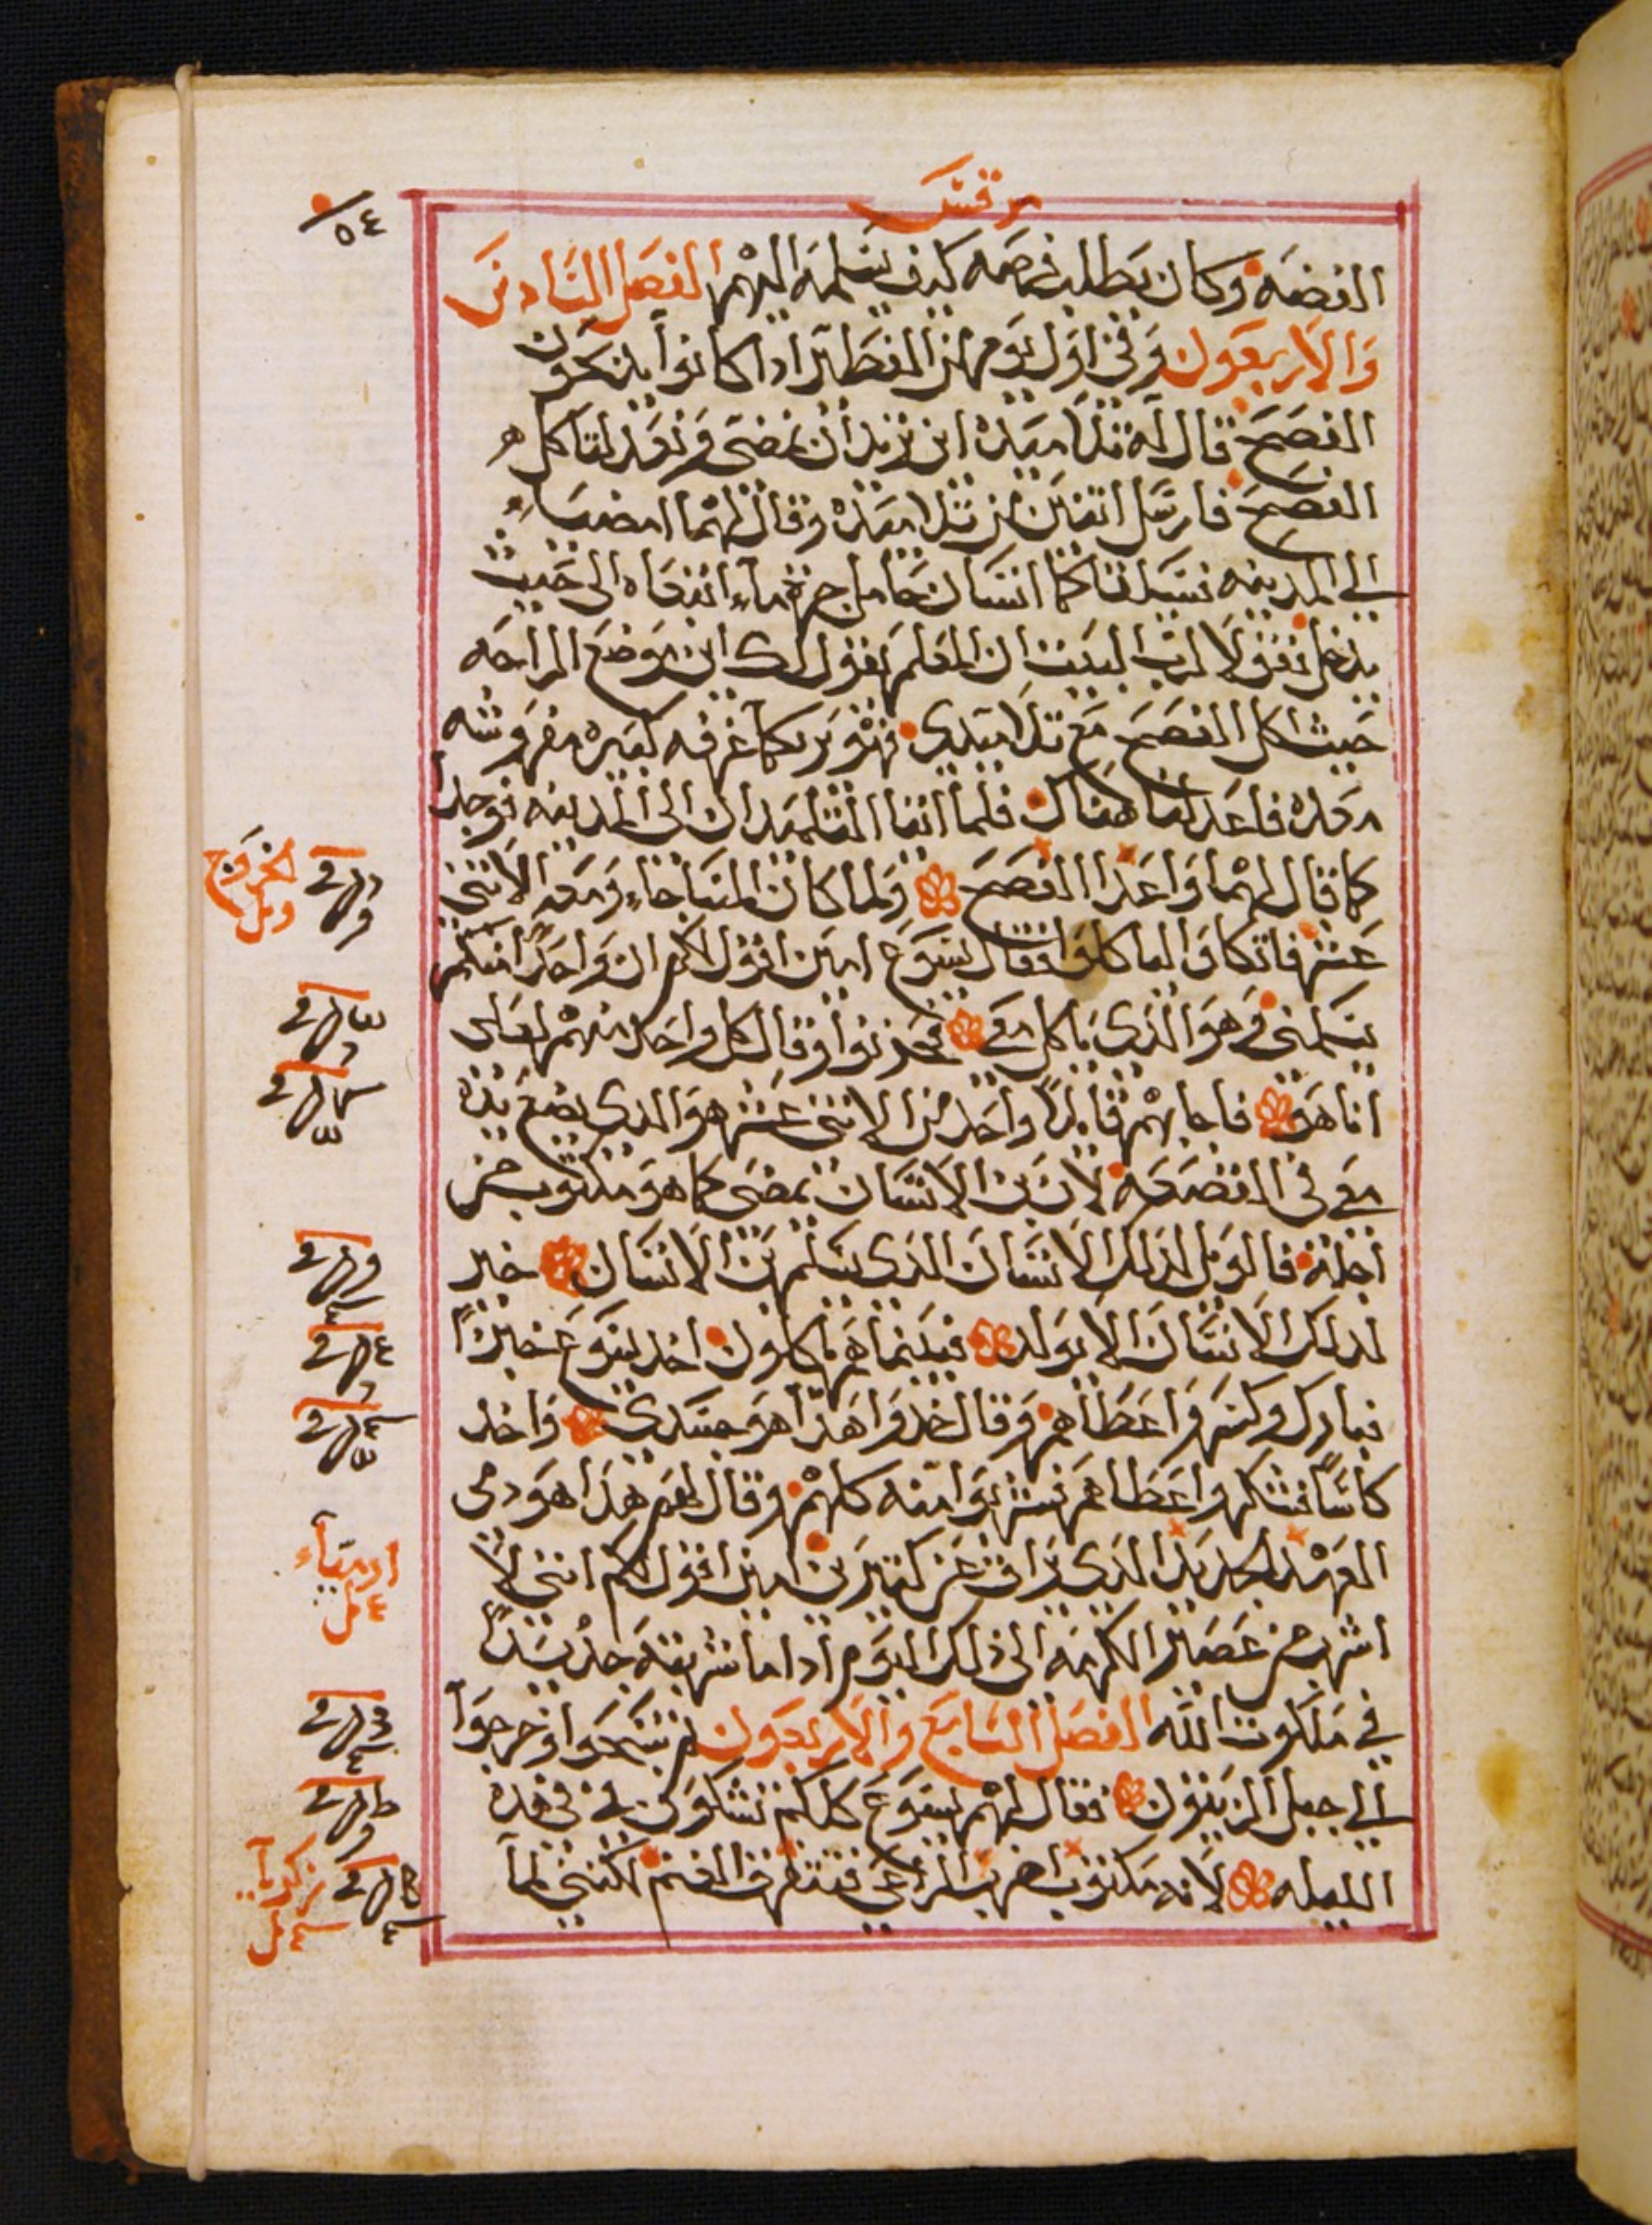 مرقس
٥٤
الفضه وكان يطلب فرصه كيف يسلمه اليهم الفصل السادس
والاربعون وفي اول يوم من الفطير اذا كانوا يذبحون
الفصح قال له تلاميذه اين تريد ان نمضي ونعد لتاكل
الفصح فارسل اثنين من تلاميذه وقال لهما امضيا
الى المدينه فسيلقاكما انسان حامل جرة ماء اتبعاه الى حيث
يدخل فقولا لرب البيت ان المعلم يقول لك اين موضع الراحه
حيث اكل الفصح مع تلاميذي فهو يريكما غرفه كبيره مفروشه
معده فاعدا لنا هناك فلما اتيا التلميذان الى المدينه فوجدا
كما قال لهما واعدا الفصح ولما كان المسا جاء ومعه الاثني
عشر فاتكاوا لياكلوا فقال يسوع امين اقول لكم ان واحدا منكم
يسلمني وهو الذي ياكل معي فحزنوا وقال كل واحد منهم لعلى
انا هو فاجابهم قايلا واحد من الاثني عشر هو الذي يضع يده
معي في الصحفه لان ابن الانسان يمضي كما هو مكتوب من
اجله فالويل لذلك الانسان الذي يسلم ابن الانسان خير
لذلك الانسان الا يولد فبينما هم ياكلون اخذ يسوع خبزا
فبارك وكسر واعطاهم وقال خذوا هذا هو جسدي واخذ
كاسا فشكر واعطاهم فشربوا منه كلهم وقال لهم هذا هو دمي
العهد الجديد الذي يراق عن كثيرين امين اقول لكم انني لا
اشرب من عصير الكرمه الى ذلك اليوم اذا ما شربته جديدا
في ملكوت الله الفصل السابع والاربعون ثم سبحوا وخرجوا
الى جبل الزيتون فقال لهم يسوع كلكم تشكون في في هذه
الليله لانه مكتوب اضرب الراعي فتتفرق الغنم لكنني لما
الخروج
ارمياء
زكريا